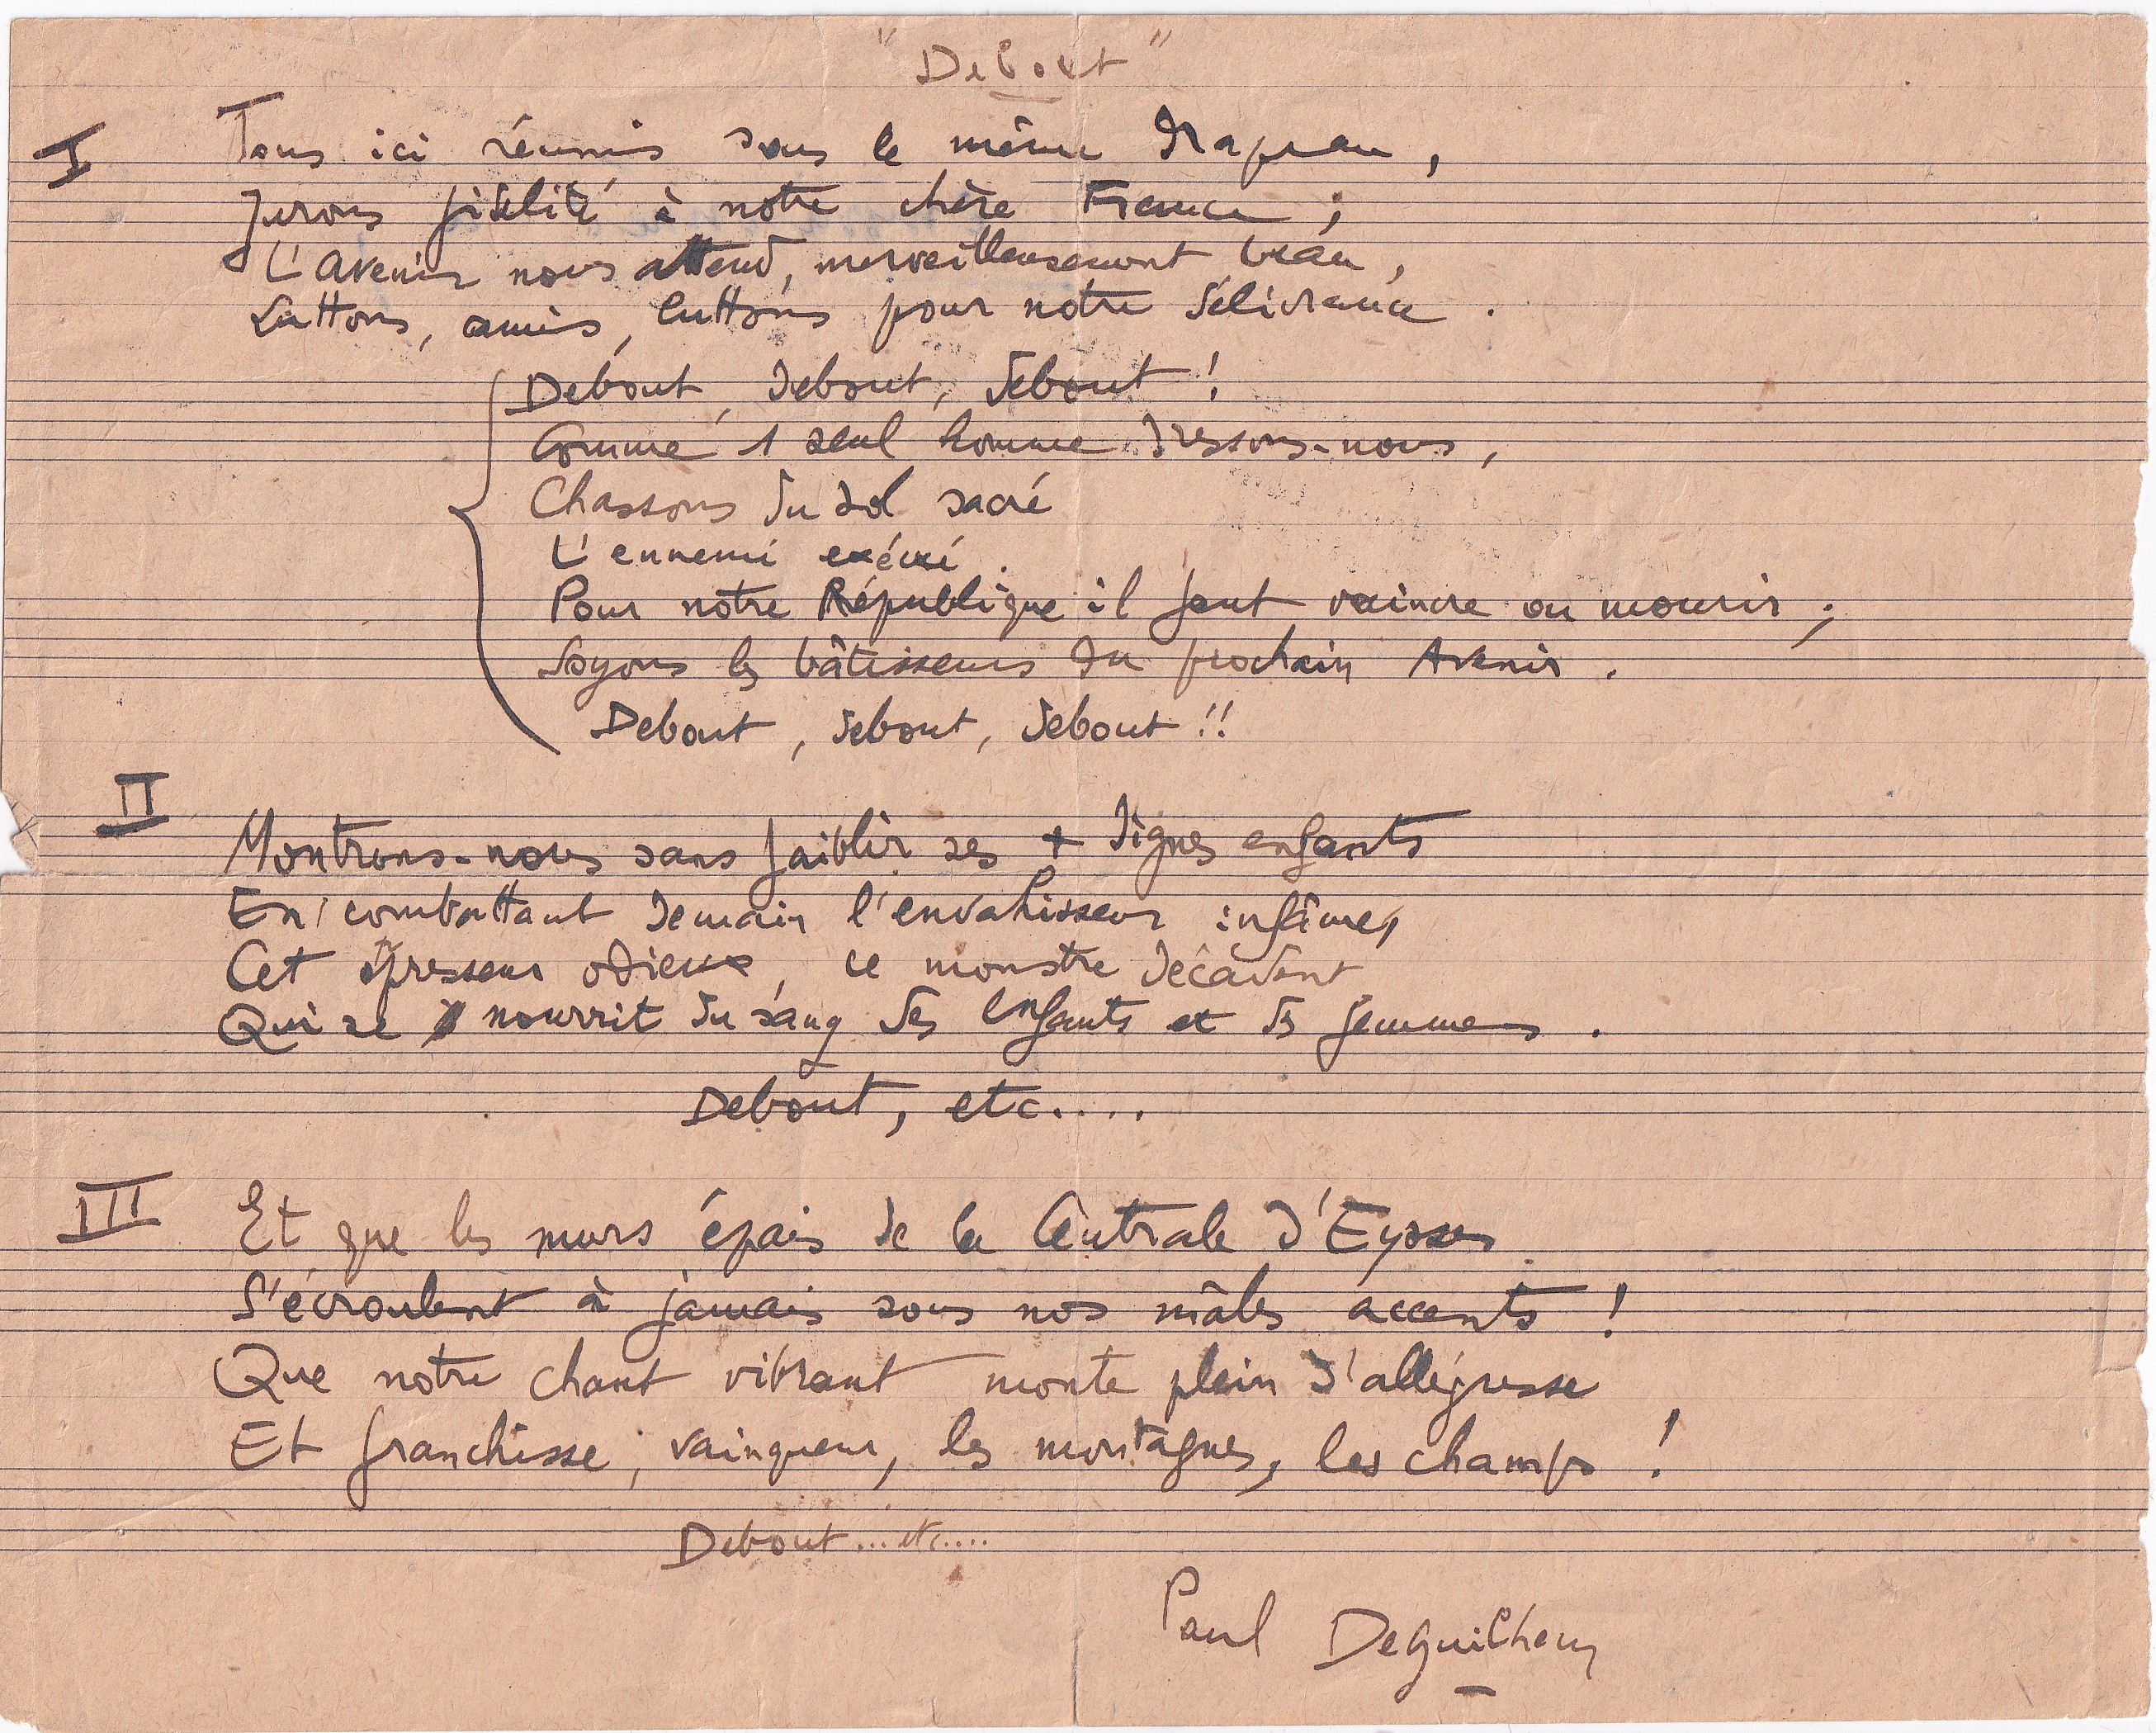 "Debout"
I
Tous ici réunis sous le même drapeau,
Jurons fidélité à notre chère France ;
L'avenir nous attend, merveilleusement beau,
Luttons, amis, luttons pour notre délivrance.
Debout, debout, debout !
Comme 1 seul homme dressons-nous,
Chassons du sol sacré
L'ennemi exécré.
Pour notre République il faut vaincre ou mourir ;
Soyons les bâtisseurs du prochain Avenir.
Debout, debout, debout !!
II
Montrons-nous sans faiblir ses + dignes enfants
En combattant demain l'envahisseur infâme,
Cet oppresseur odieux, ce monstre décadent
Qui se nourrit du sang des enfants et des femmes.
Debout, etc....
III
Et que les murs épais de la Centrale d'Eysses
S'écroulent à jamais sous nos mâles accents !
Que notre chant vibrant monte plein d'allégresse
Et franchisse, vainqueur, les montagnes, les champs !
Debout...etc....
Paul Deguilhem